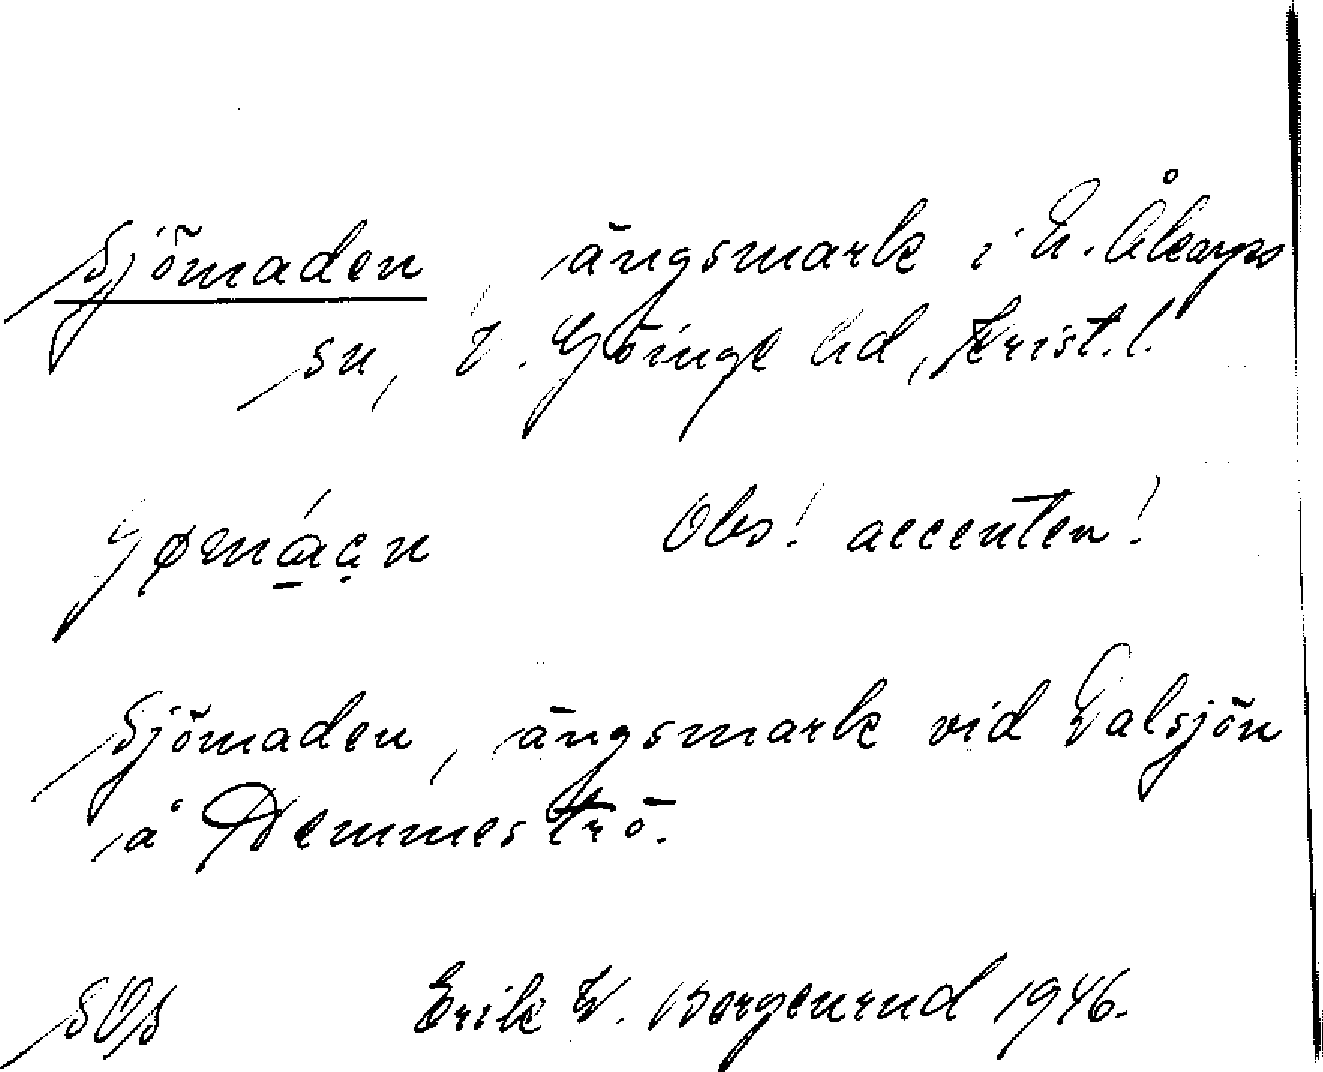 Sjömaden, ängsmark i N. Åkarps
sn, V. Göinge hd, Krist. l.
Obs! accenten!
Sjömaden, ängsmark vid Valsjön
å Demmeströ.
SOS Erik W. Bergenrud 1946.